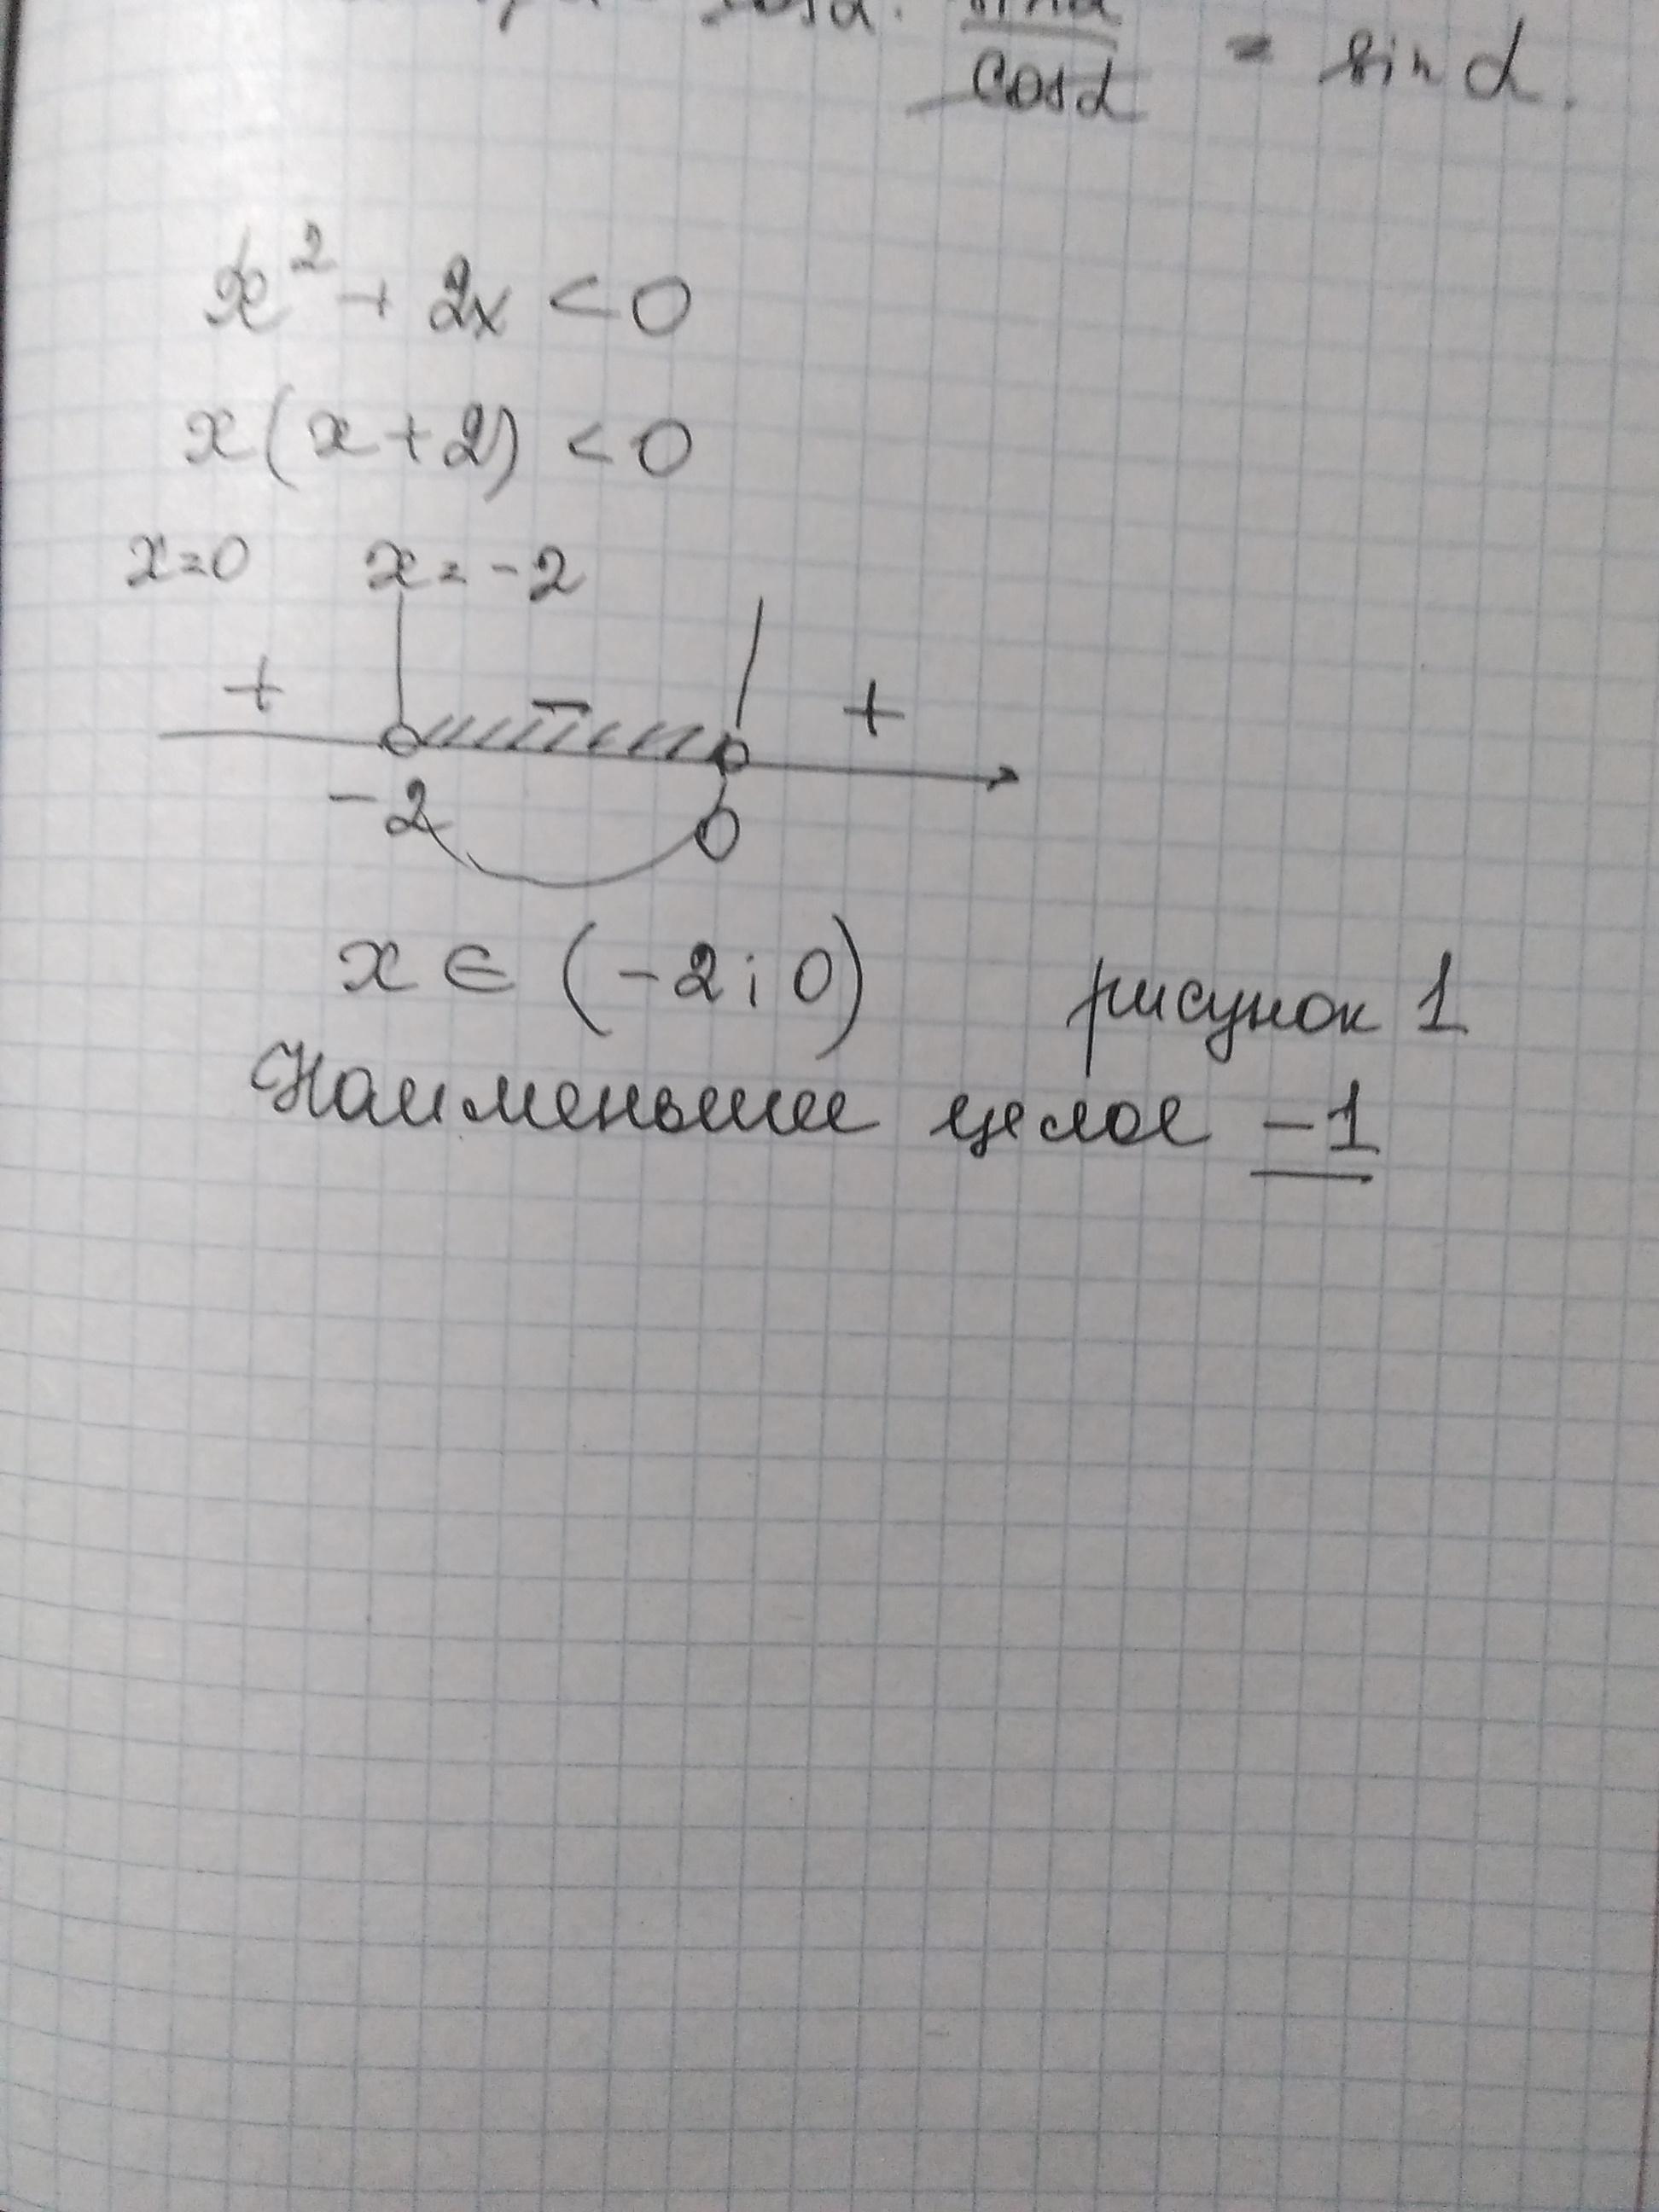 cosα · sinα / cosα = sin α.
x² + 2x < 0
x(x+2) < 0
x=0 x=-2
+ − +
-2 0
x ∈ (-2; 0) рисунок 1
Наименьшее целое -1